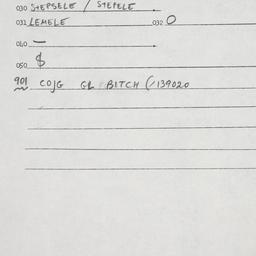 030 STEPSELE / STEPELE
031 LEMELE 032 O
040 —
050 $
901 COJG GL BITCH (/139020